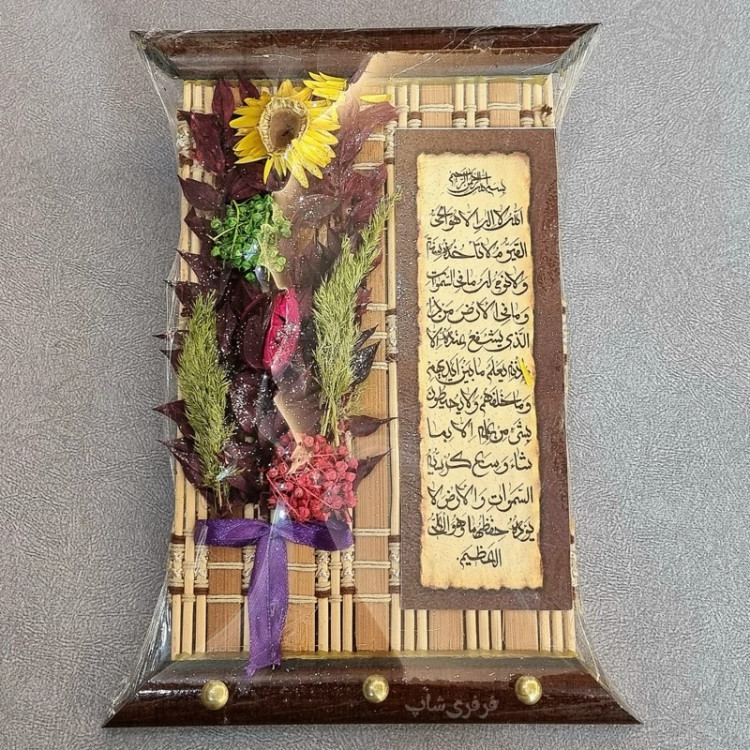 بسم الله الرحمن الرحیم
الله لا اله الا هو الحی
القیوم لا تاخذه سنة
ولا نوم له ما فی السموات
وما فی الارض من ذا
الذی یشفع عنده الا
باذنه یعلم ما بین ایدیهم
وما خلفهم ولا یحیطون
بشیء من علمه الا بما
شاء وسع کرسیه
السموات والارض ولا
یؤده حفظهما وهو العلی
العظیم
فرفری شاپ